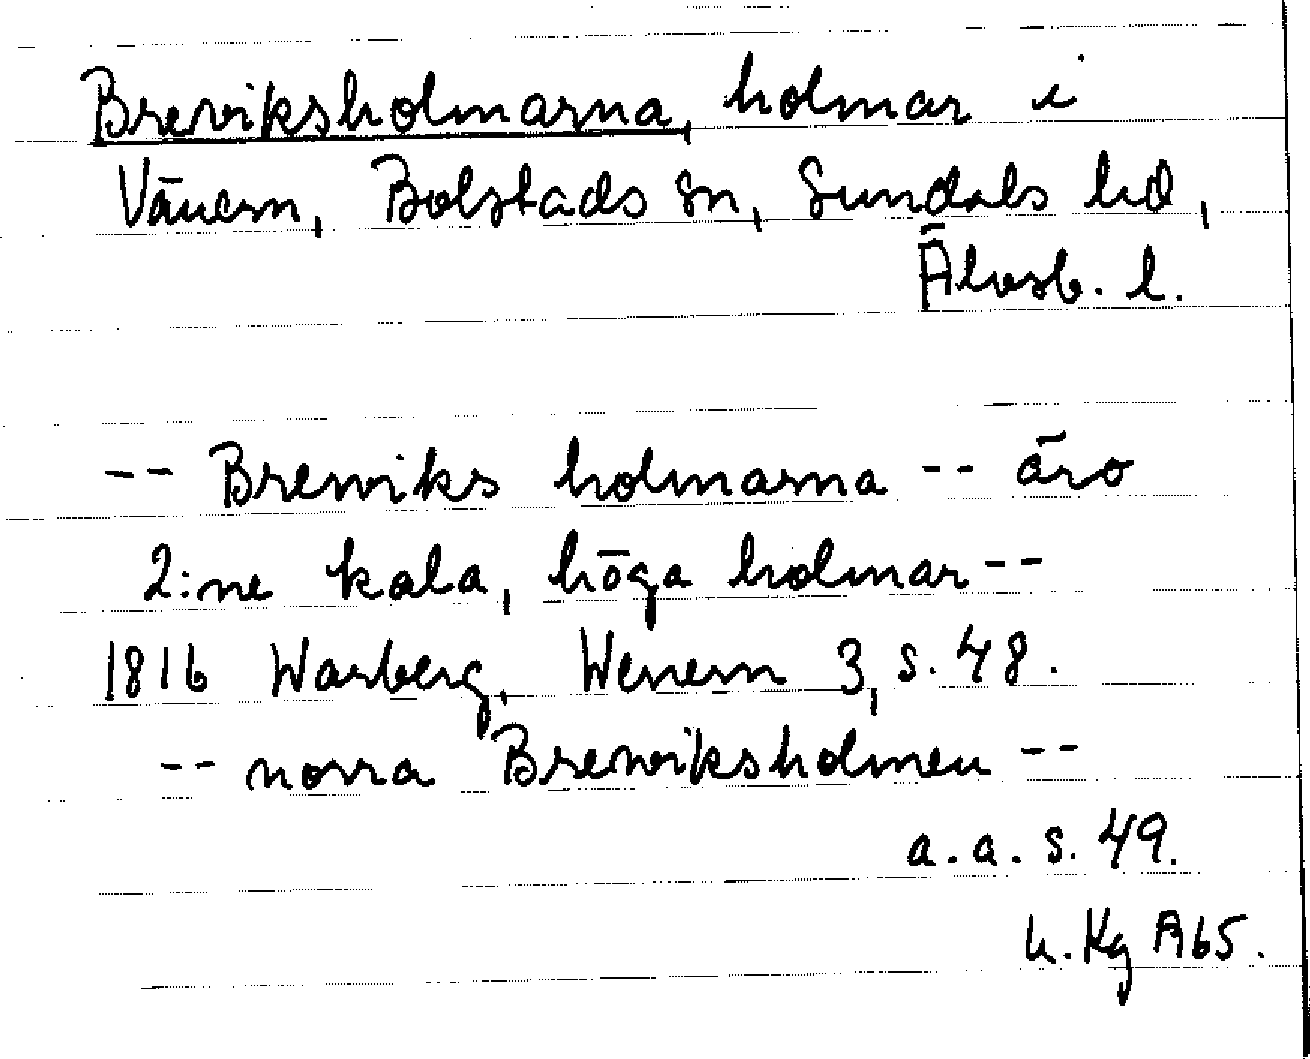 Breviksholmarna, holmar i
Vänern, Bolstads sn, Sundals hd,
Älvsb. l.
-- Brewiks holmarna -- äro
2:ne kala, höga holmar --
1816 Warberg, Wenern 3, s. 48.
-- norra Brewiksholmen --
a. a. s. 49.
h. Kg A65.